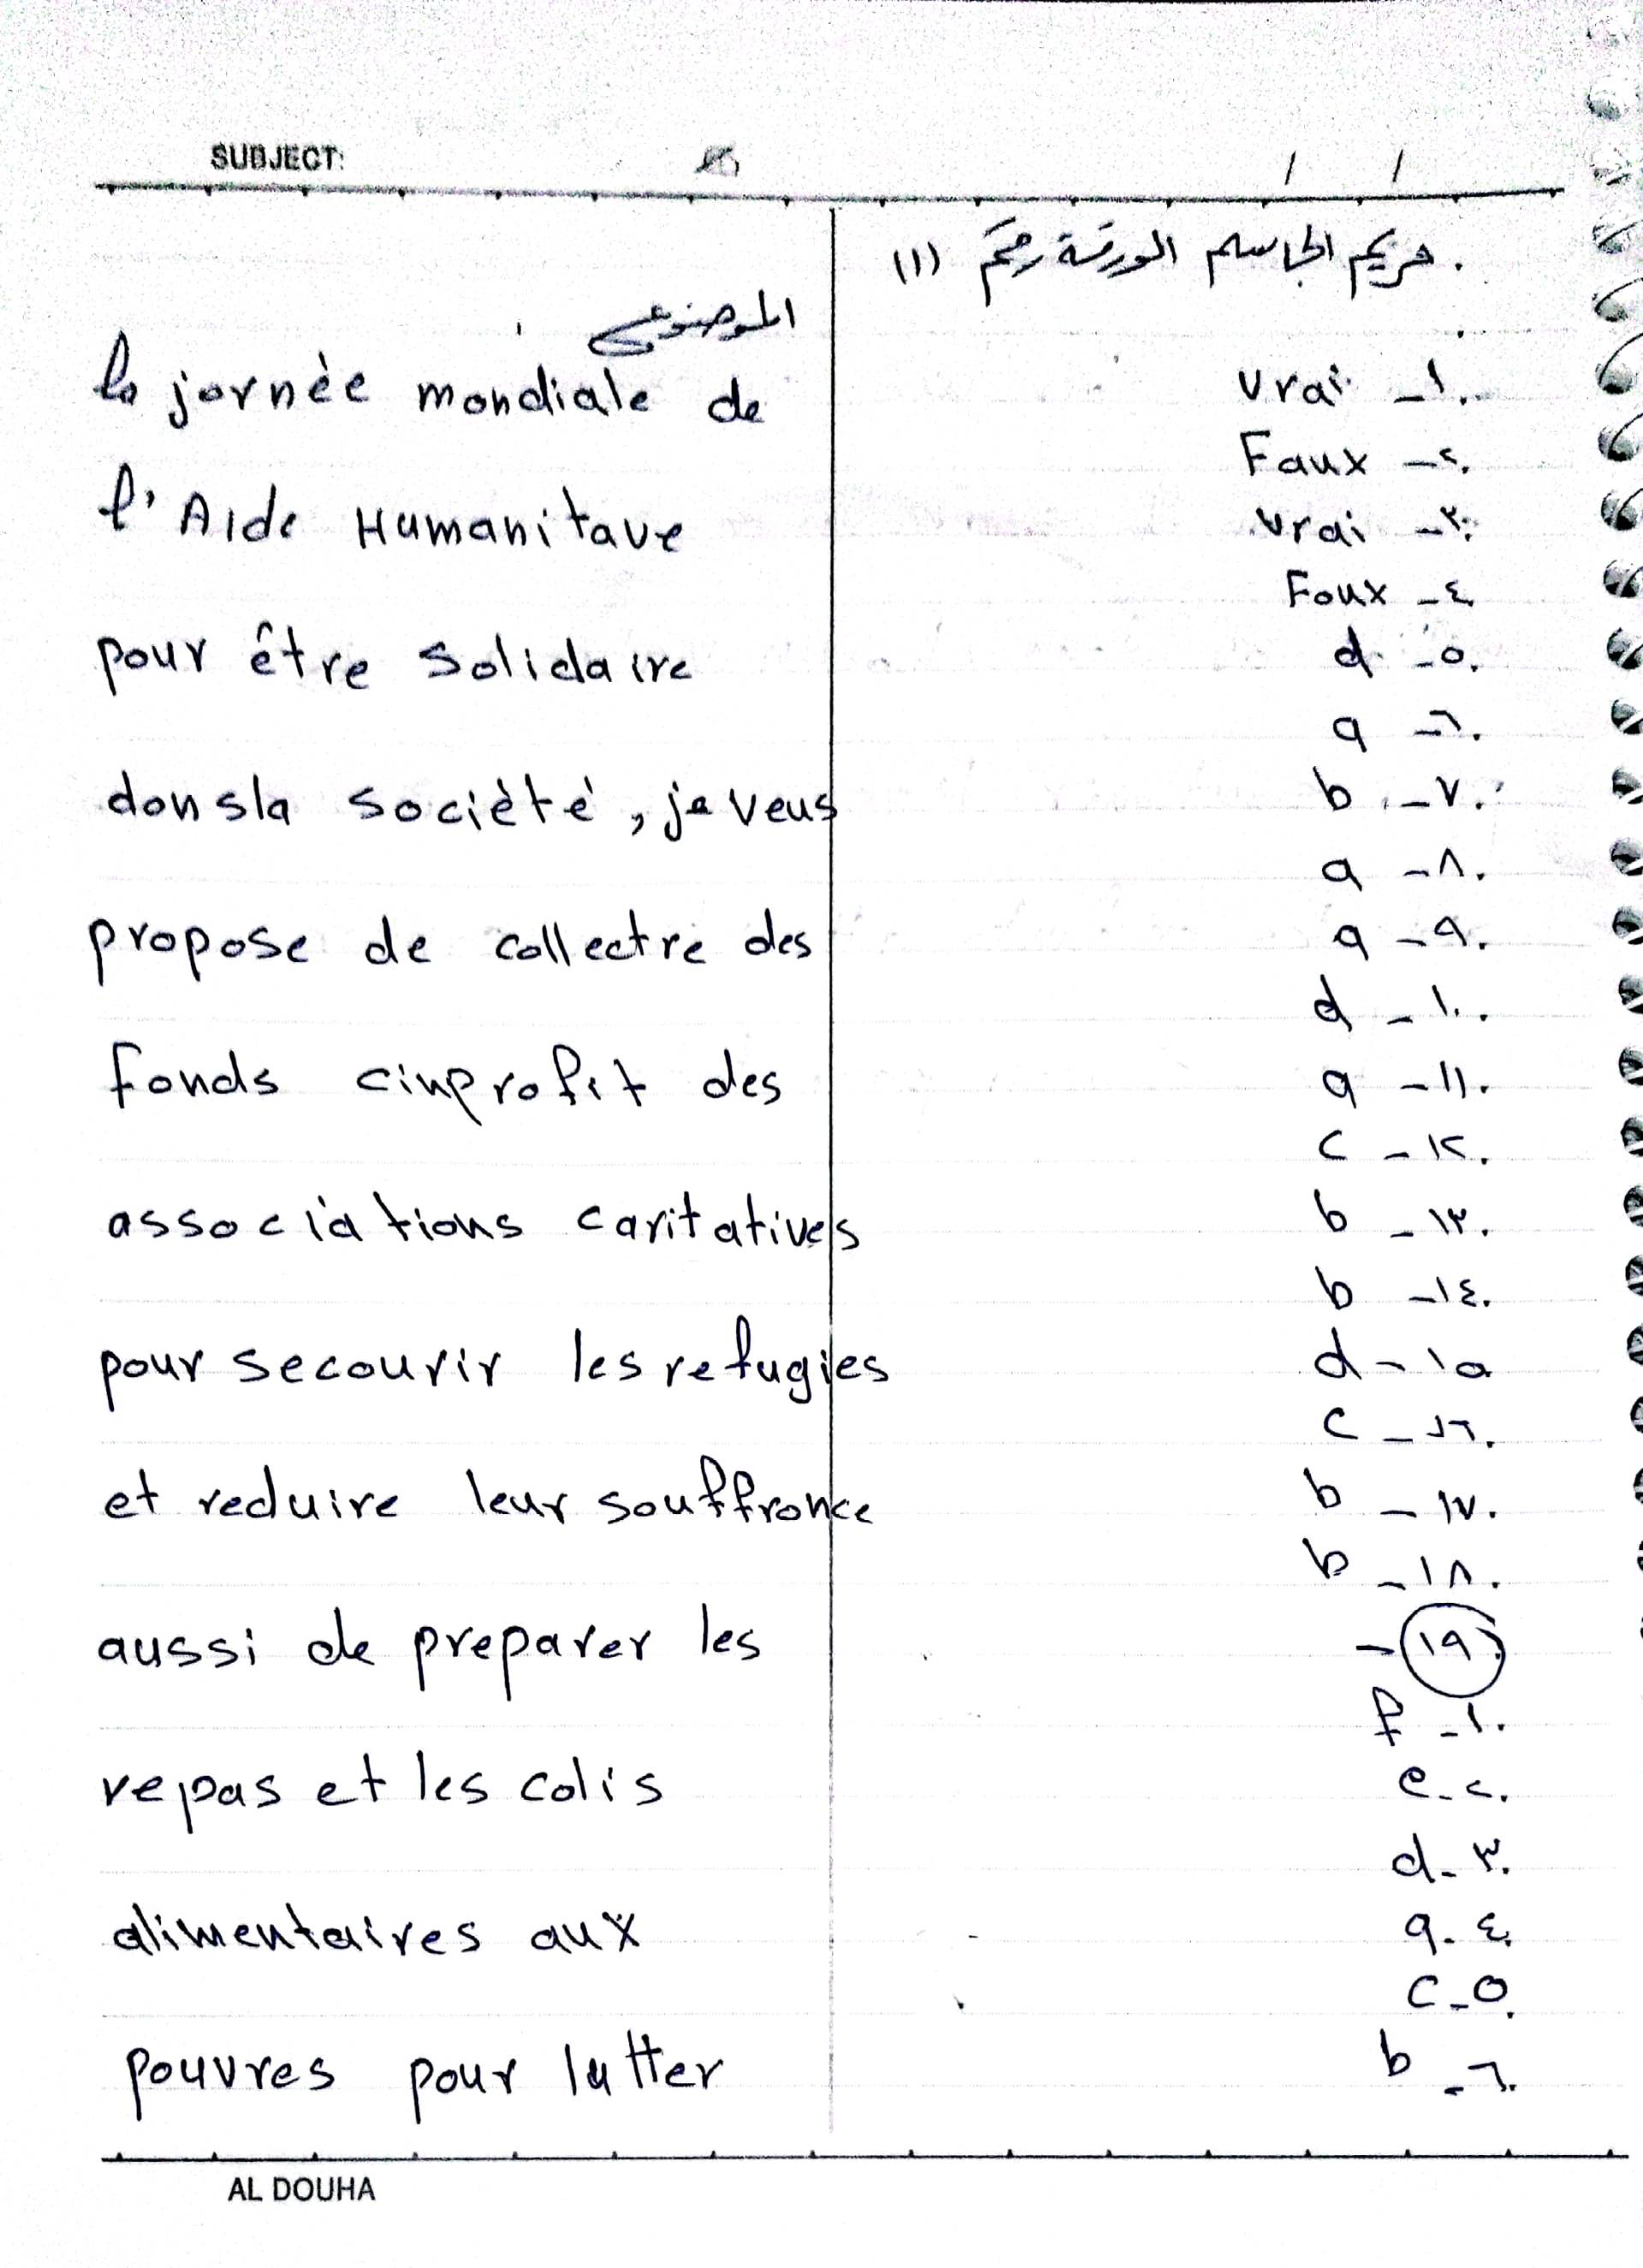 SUBJECT:
/ /
. مريم الجاسم الورقة رقم (١)
vrai - ١.
Faux - ٢.
vrai - ٣.
Foux - ٤
d - ٥.
a - ٦.
b - ٧.
a - ٨.
a - ٩.
d - ١٠.
a - ١١.
c - ١٢.
b - ١٣.
b - ١٤.
d - ١٥
c - ١٦.
b - ١٧.
b - ١٨.
- ١٩.
f - ١.
e - ٢.
d - ٣.
a - ٤.
c - ٥.
b - ٦.
الموضوع
la jornèe mondiale de
l'Aide Humanitave
pour être solidaire
dons la sociètè, je veus
propose de collectre des
fonds cinprofit des
associations caritatives
pour secourir les refugies
et reduire leur souffronce
aussi de preparer les
repas et les colis
alimentaires aux
pouvres pour lutter
AL DOUHA